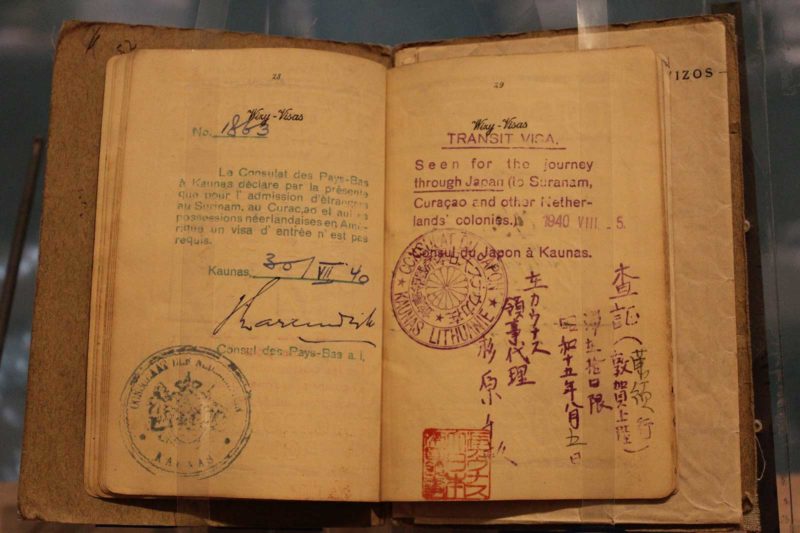 28
Wizy-Visas
No. 1863
Le Consulat des Pays-Bas
à Kaunas déclare par la présente
que pour l' admission d'étrangers
au Surinam, au Curaçao et autres
possessions néerlandaises en Amé-
rique un visa d' entrée n'est pas
requis.
Kaunas, 30/VII 40
Consul des Pays-Bas a. i.
KAUNAS
29
Wizy-Visas
TRANSIT VISA.
Seen for the journey
through Japan (to Suranam,
Curaçao and other Nether-
lands' colonies.) 1940 VIII 5.
Consul du Japon à Kaunas.
CONSULAT DU JAPON
KAUNAS LITHUANIE
査証(敦賀上陸)
昭和十五年八月五日
在カウナス
領事代理
杉原
VIZOS –